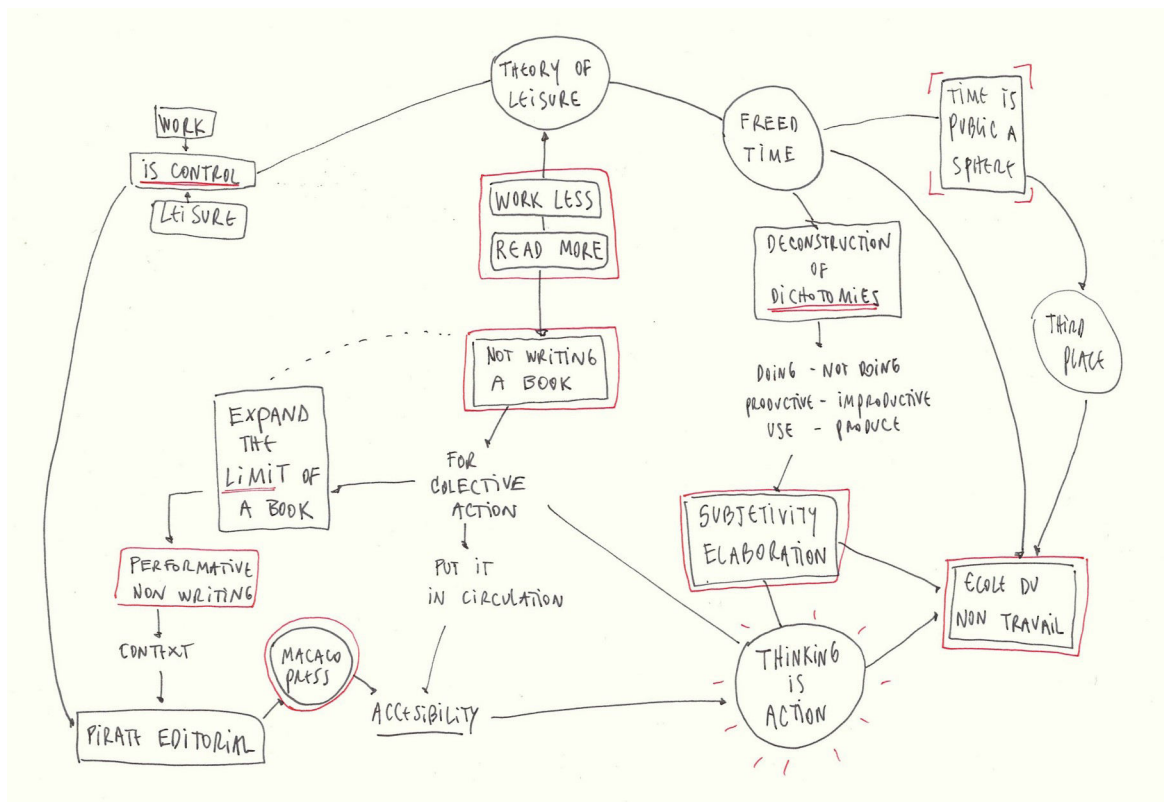 THEORY OF
LEISURE
WORK
IS CONTROL
LEISURE
FREED
TIME
TIME IS
PUBLIC A
SPHERE
WORK LESS
READ MORE
DECONSTRUCTION
OF
DICHOTOMIES
THIRD
PLACE
NOT WRITING
A BOOK
DOING - NOT DOING
PRODUCTIVE - IMPRODUCTIVE
USE - PRODUCE
EXPAND
THE
LIMIT OF
A BOOK
FOR
COLECTIVE
ACTION
SUBJETIVITY
ELABORATION
PERFORMATIVE
NON WRITING
PUT IT
IN CIRCULATION
ECOLE DU
NON TRAVAIL
CONTEXT
MACACO
PRESS
THINKING
IS
ACTION
ACCESIBILITY
PIRATE EDITORIAL